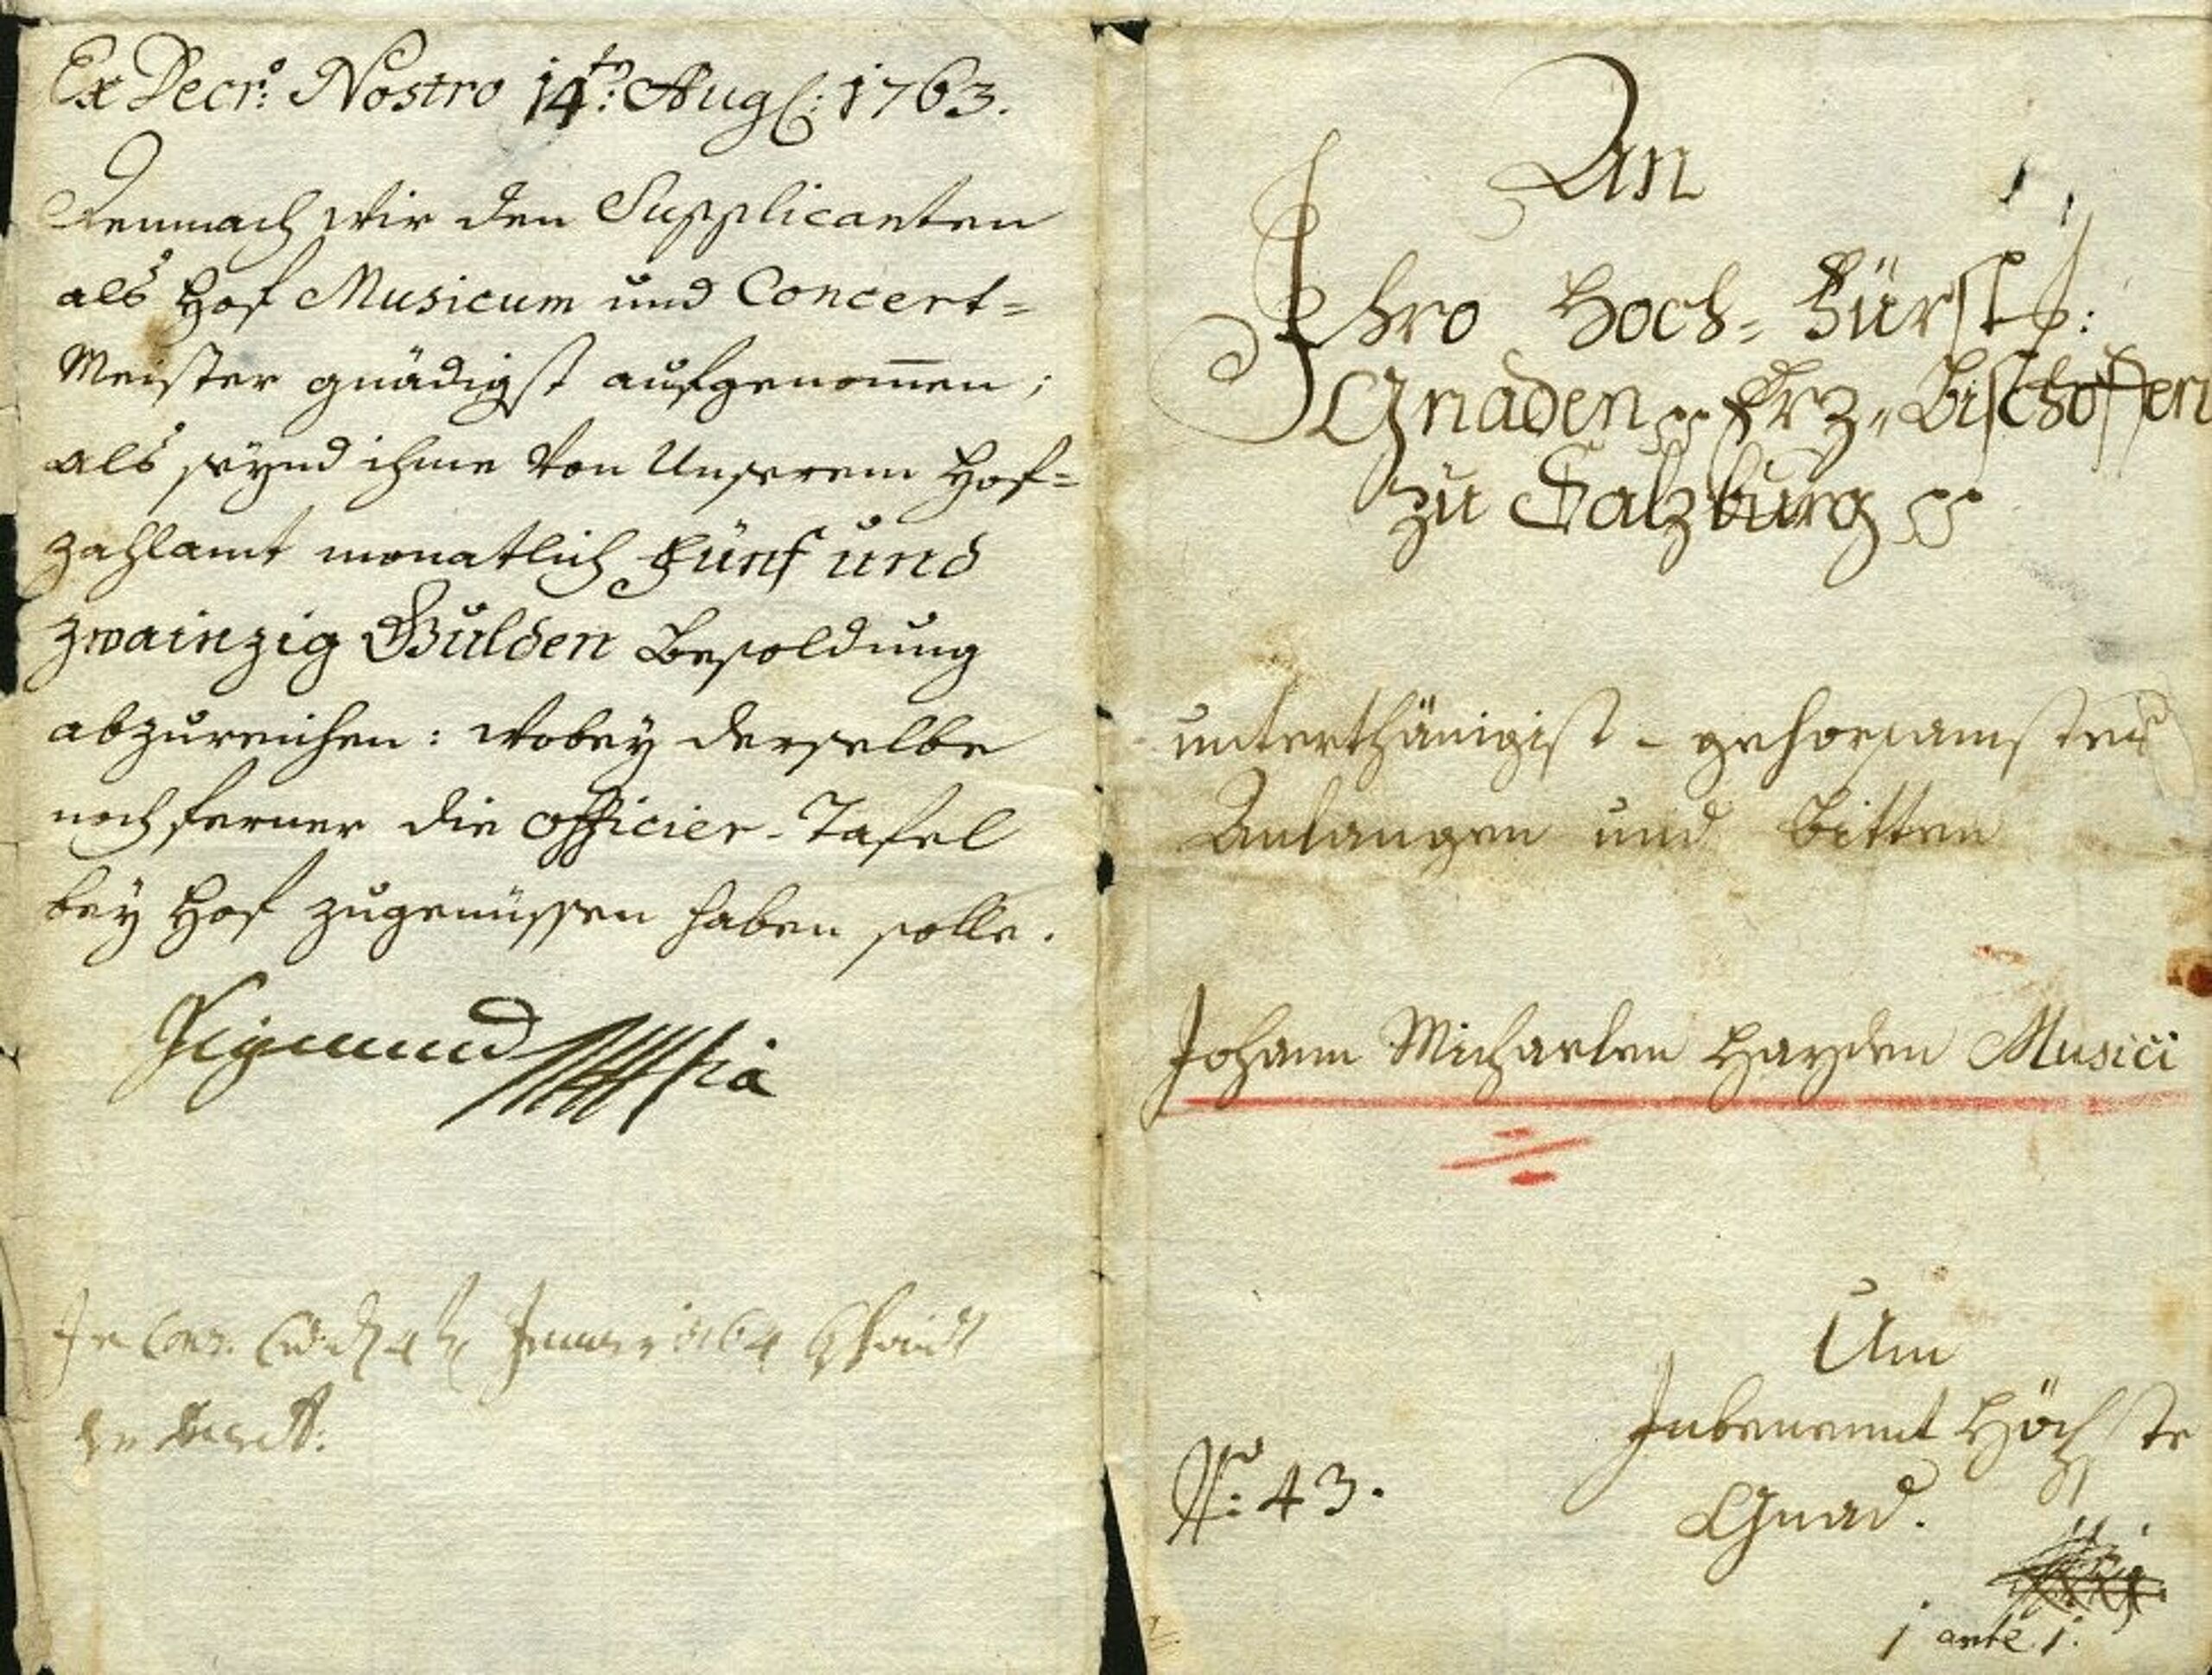 Ex Decr: Nostro 14te: Aug: 1763.
Demnach Wir den Supplicanten
als Hof Musicum und Concert=
Meister gnädigst aufgenom̅en;
als seynd ihme von Unserem Hof=
zahlamt monatlich Fünf und
zwainzig Gulden Besoldung
abzureichen: wobey derselbe
noch ferner die officier-Tafel
bey Hof zugenüssen haben solle.
Sigmund
An
Ihro Hoch= Fürstl:
Gnaden Erz= Bischoffen
zu Salzburg
unterthänigist - gehorsamstes
Anlangen und Bitten
Johann Michaelen Hayden Musici
Um
Inbenennt Höchste
Gnad.
No: 43.
j ante j.